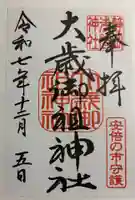 奉拝
大歳御祖神社
安倍の市守護
令和七年十二月五日